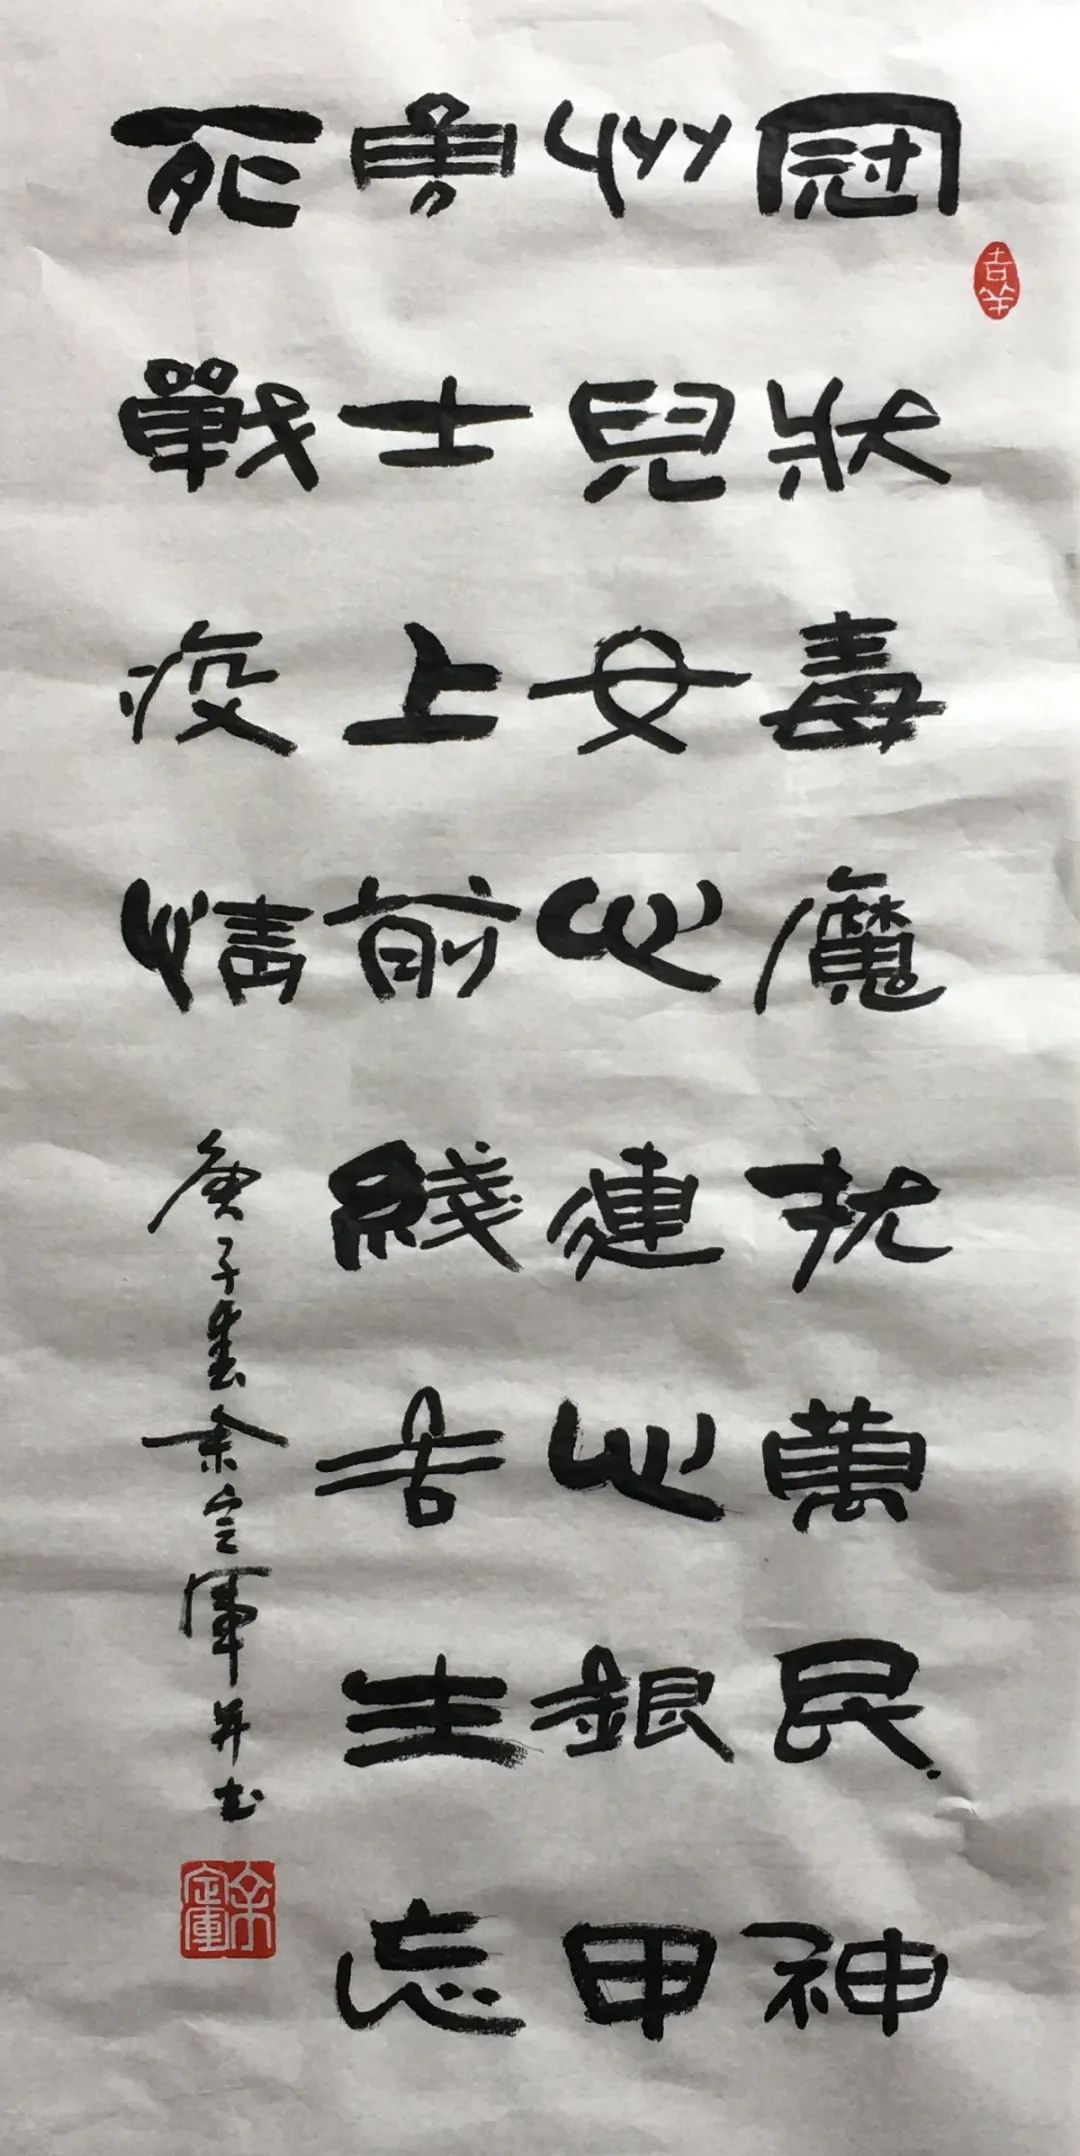 冠狀毒魔扰萬民神
州兒女心連心銀甲
勇士上前綫舍生忘
死戰疫情
庚子春余定軍并书
吉羊
余定軍